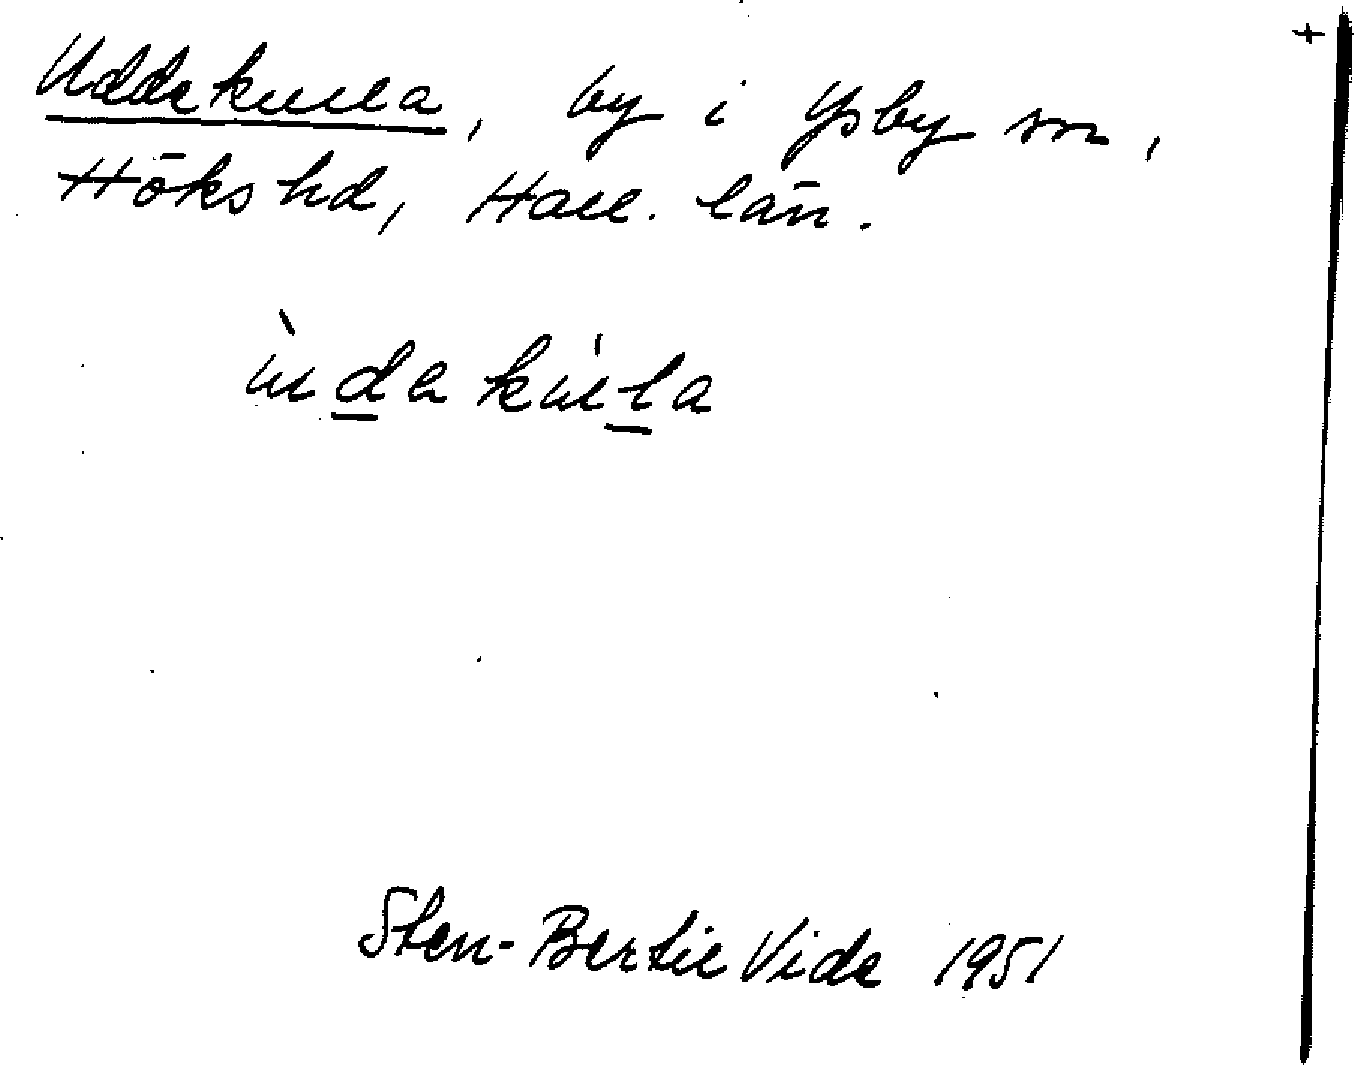 +
Uddekulla, by i Ysby sn,
Höks hd, Hall. län.
ùdekúla
Sten-Bertil Vide 1951